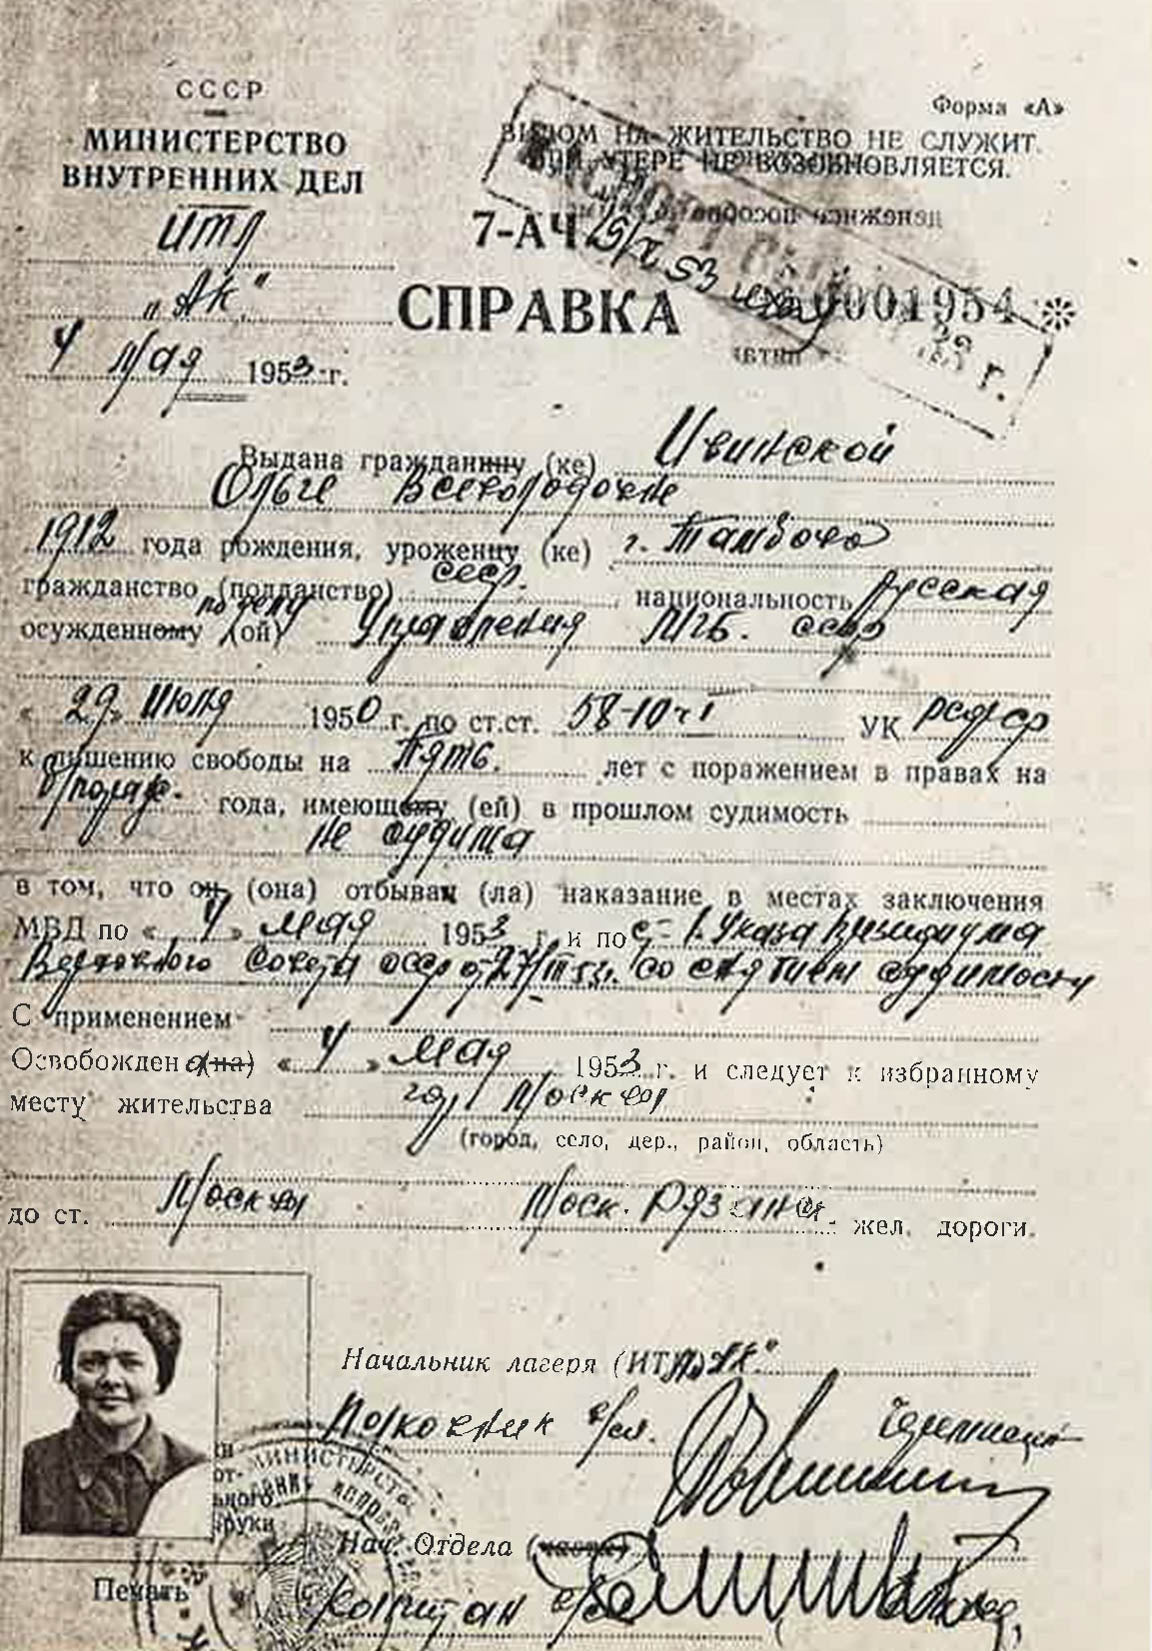 СССР
МИНИСТЕРСТВО
ВНУТРЕННИХ ДЕЛ
ИТЛ
„АК“
4 Мая 1953 г.
Форма «А»
ВИДОМ НА ЖИТЕЛЬСТВО НЕ СЛУЖИТ.
ПРИ УТЕРЕ НЕ ВОЗОБНОВЛЯЕТСЯ.
7-АЧ
СПРАВКА
0001954
Выдана гражданину (ке) Ивинской
Ольге Всеволодовне
1912 года рождения, уроженцу (ке) г. Тамбова
гражданство (подданство) СССР. национальность Русская
осужденному (ой) по делу Управления МГБ. СССР
« 29 » Июля 1950 г. по ст.ст. 58-10 ч I УК РСФСР
к лишению свободы на Пять. лет с поражением в правах на
б/пораж. года, имеющему (ей) в прошлом судимость
не судима
в том, что он (она) отбывал (ла) наказание в местах заключения
МВД по « 4 » Мая 1953 г. и по с- 1. Указа Президиума
Верховного Совета СССР от 27/III 53г. со снятием судимости
С применением
Освобожден а(на) « 4 » Мая 1953 г. и следует к избранному
месту жительства гор Москвы
(город, село, дер., район, область)
до ст. Москвы Моск. Рязанск. жел. дороги.
Начальник лагеря (ИТЛ) „АК“
Полковник в/сл.
Нач. Отдела (части)
Капитан
Печать